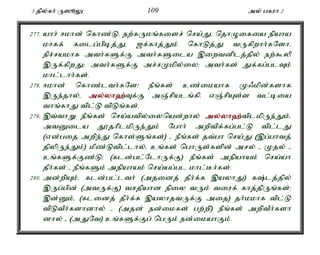 3 தில்கர் ருஸூலு 109 அல் பகரா 2
277. யார் ஈமான் கொண்டு, நற்கருமங்களைச் செய்து, தொழுகையை நியாய
மாகக் கடைப்பிடித்து, ஜக்காத்தும் கொடுத்து வருகிறார்களோ,
நிச்சயமாக அவர்களுக்கு அவர்களுடைய இறைவனிடத்தில் நற்கூலி
இருக்கிறது; அவர்களுக்கு அச்சமுமில்லை; அவர்கள் துக்கப்படவும்
மாட்டார்கள்.
278. ஈமான் கொண்டவர்களே! நீங்கள் உண்மையாக முஃமின்களாக
இருந்தால், அல்லாஹ்வுக்கு அஞ்சியடங்கி, எஞ்சியுள்ள வட்டியை
வாங்காது விட்டு விடுங்கள்.
279. இவ்வாறு நீங்கள் செய்யவில்லையென்றால் அல்லாஹ்விடமிருந்தும்,
அவனுடைய தூதரிடமிருந்தும் போர் அறிவிக்கப்பட்டு விட்டது
(என்பதை அறிந்து கொள்ளுங்கள்) - நீங்கள் தவ்பா செய்து (இப்பாவத்
திலிருந்தும்) மீண்டுவிட்டால், உங்கள் பொருள்களின் அசல் - முதல் -
உங்களுக்குண்டு; (கடன்பட்டோருக்கு) நீங்கள் அநியாயம் செய்யா
தீர்கள் - நீங்களும் அநியாயம் செய்யப்பட மாட்டீர்கள்.
280. அன்றியும், கடன்பட்டவர் (அதனைத் தீர்க்க இயலாது) கஷ்டத்தில்
இருப்பின் (அவருக்கு) வசதியான நிலை வரும் வரைக் காத்திருங்கள்;
இன்னும், (கடனைத் தீர்க்க இயலாதவருக்கு அதை) தர்மமாக விட்டு
விடுவீர்களானால் - (அதன் நன்மைகள் பற்றி) நீங்கள் அறிவீர்களா
னால் - (அதுவே) உங்களுக்குப் பெரும் நன்மையாகும்.